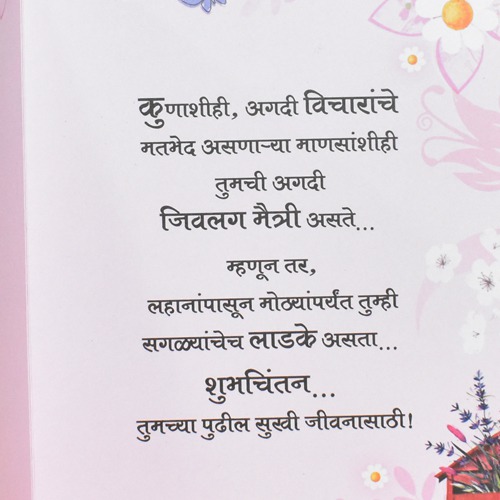 कुणाशीही, अगदी विचारांचे
मतभेद असणाऱ्या माणसांशीही
तुमची अगदी
जिवलग मैत्री असते...
म्हणून तर,
लहानांपासून मोठ्यांपर्यंत तुम्ही
सगळ्यांचेच लाडके असता...
शुभचिंतन...
तुमच्या पुढील सुखी जीवनासाठी!